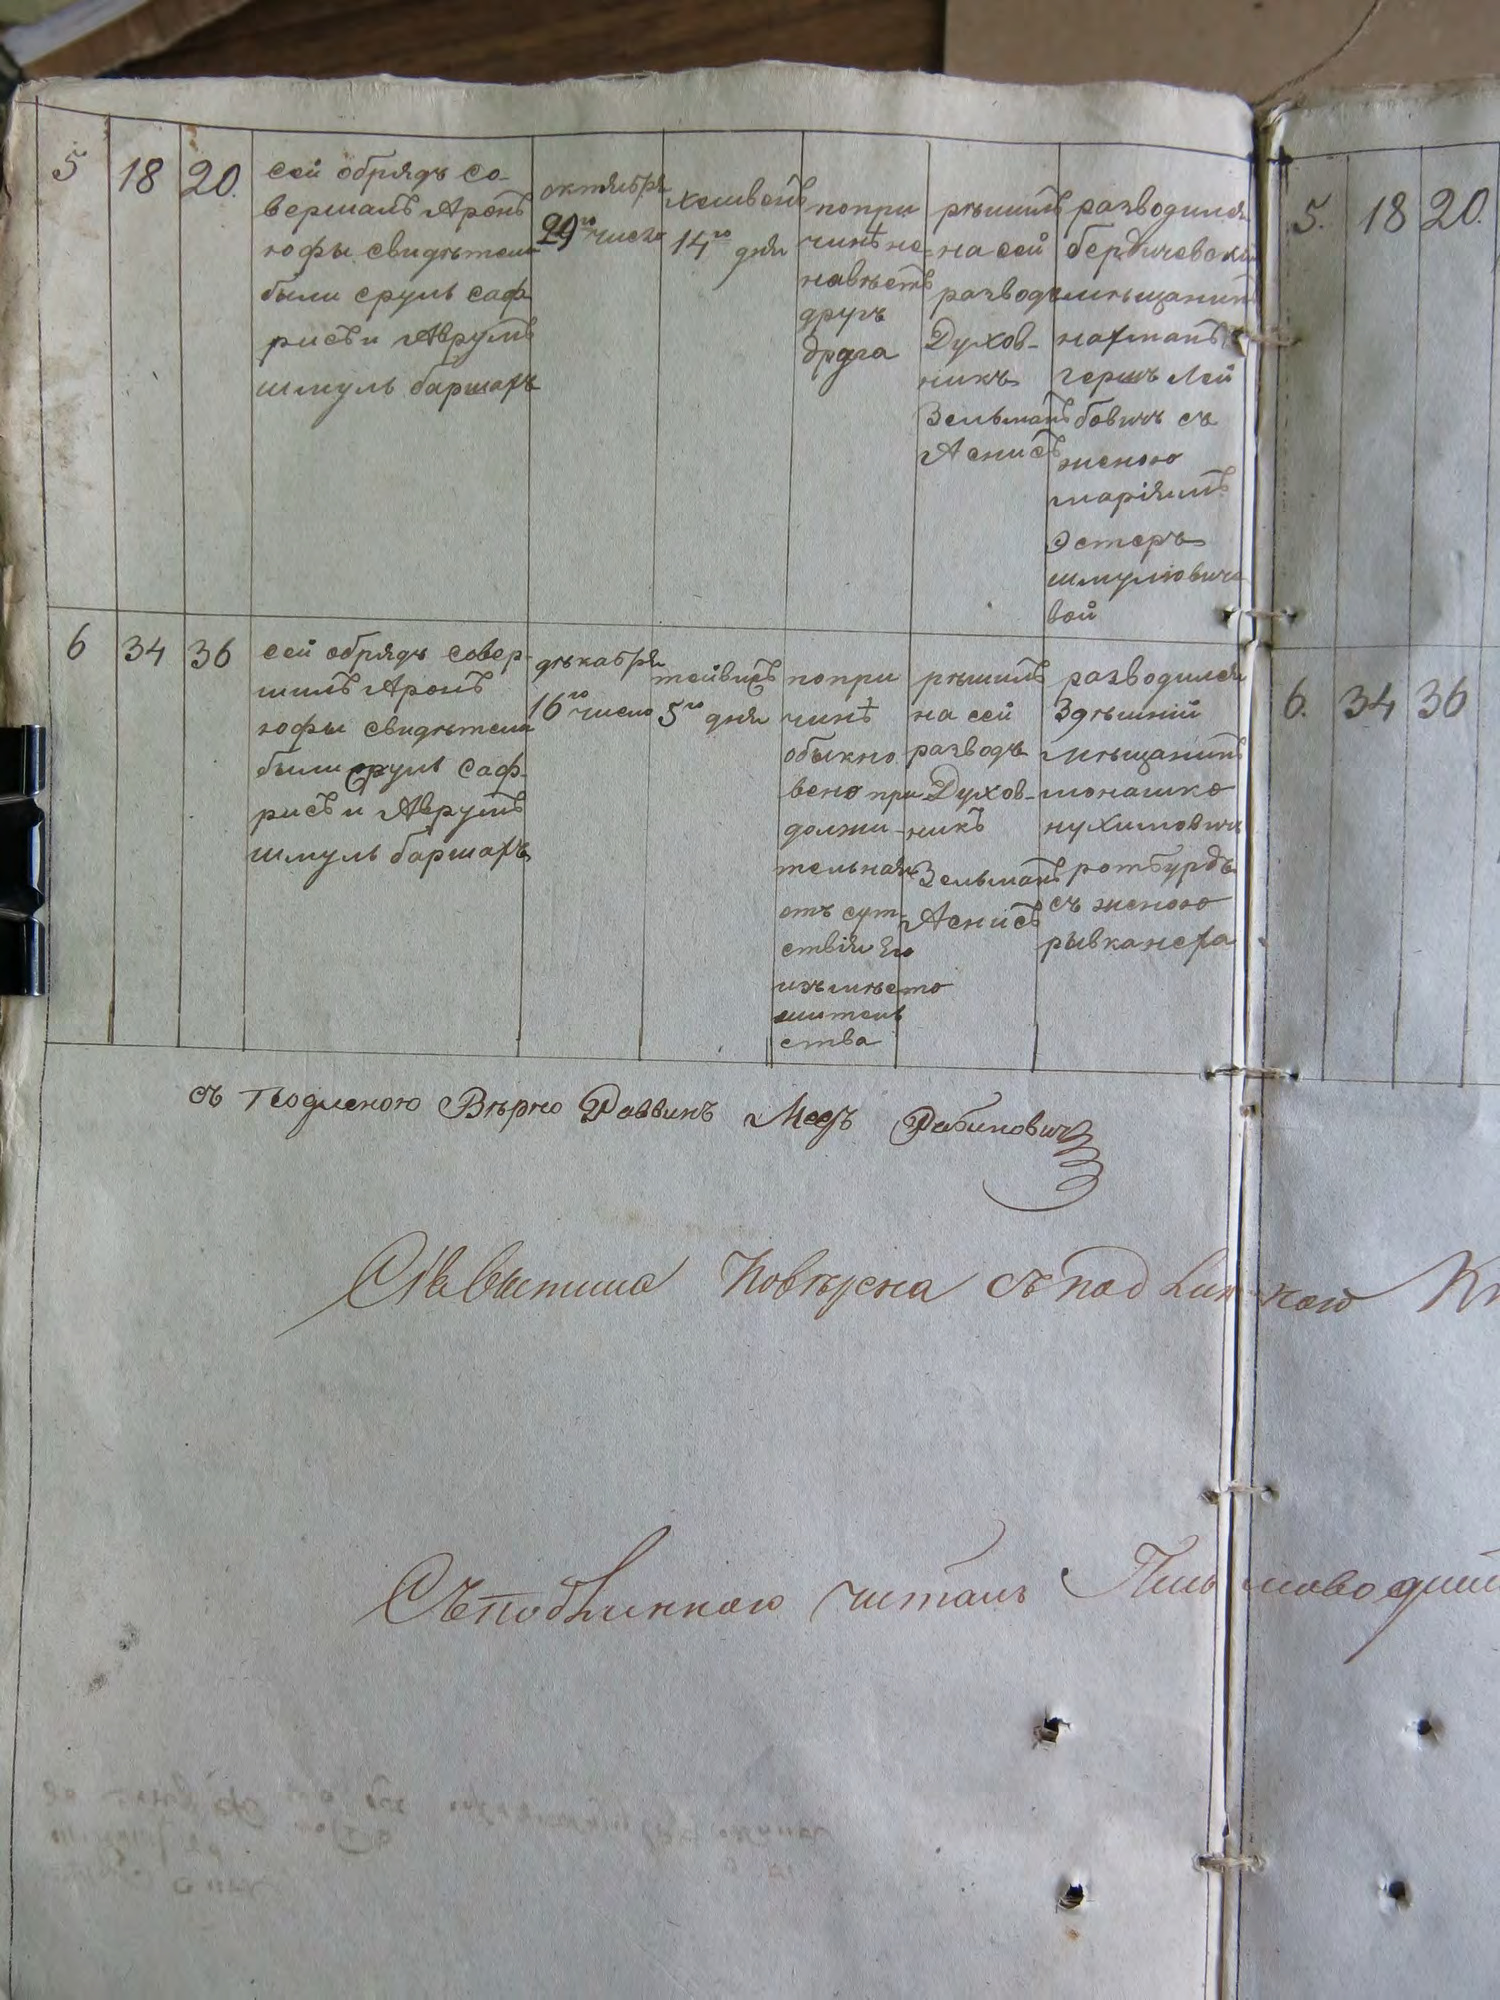 5
18
20.
сей обрядъ со-
вершалъ Аронъ
юфы свидѣтели
были сруль саф-
рисъ и Аврумъ
шмуль баршаръ
октября
29го число
Хешвенъ
14го дня
попри
чинѣ не-
навѣсть
другъ
друга
рѣшилъ
на сей
разводъ
Духов-
никъ
Зельманъ
Аснисъ
разводился
бердичевский
мѣщанинъ
нахманъ
гершъ Лей
бовичъ съ
женою
маріямъ
Эстеръ
шмулiовиче
вой
6
34
36
сей обрядъ совер-
шилъ Аронъ
юфы свидѣтели
были сруль саф-
рисъ и Аврумъ
шмуль баршаръ
дѣкабря
16го число
тейвисъ
5го дня
попри
чинѣ
обыкно
вено при
должи-
тельная
отъ сут-
ствія Его
изъ мѣсто
жительства
рѣшилъ
на сей
разводъ
Духов-
никъ
Зельманъ
Аснисъ
разводился
Здѣшній
мѣщанинъ
монашко
нухимовичъ
ротбурдъ
съ женою
рывканеха
съ Подленою Вѣрно Раввинъ Рабиновичъ
повѣрена съ подлинного
Съ подлинного читалъ
5.
18
20.
6.
34
36